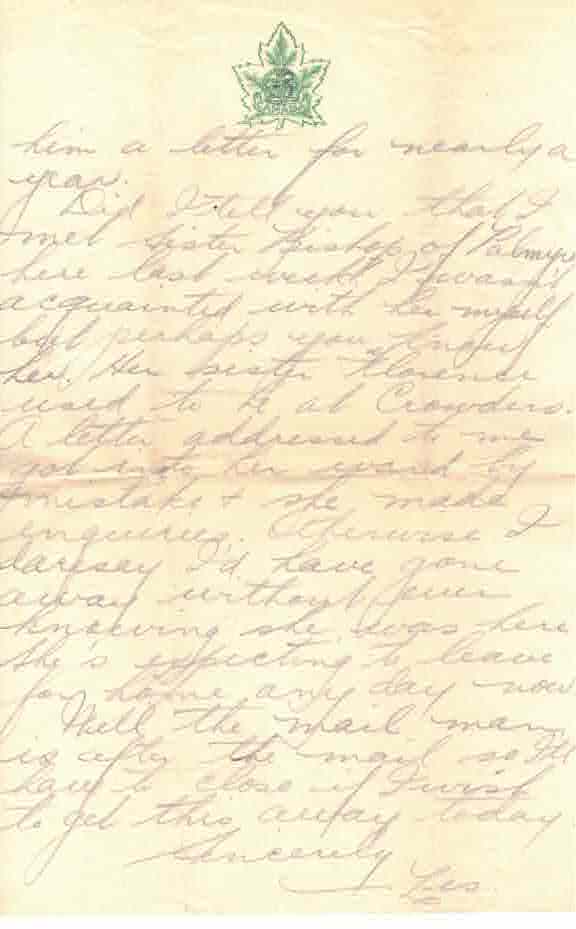 CANADA
him a letter for nearly a
year.
Did I tell you that I
met Sister Bishop of Palmyra
here last week? I wasn't
acquainted with her myself
but perhaps you know
her. Her sister Florence
used to be at Crowders.
A letter addressed to me
got into her ward by
mistake & she made
enquiries. Otherwise I
daresay I'd have gone
away without ever
knowing she was here
She's expecting to leave
for home any day now
Well the mail man
is after the mail so I'll
have to close if I wish
to get this away today.
Sincerely
Les.